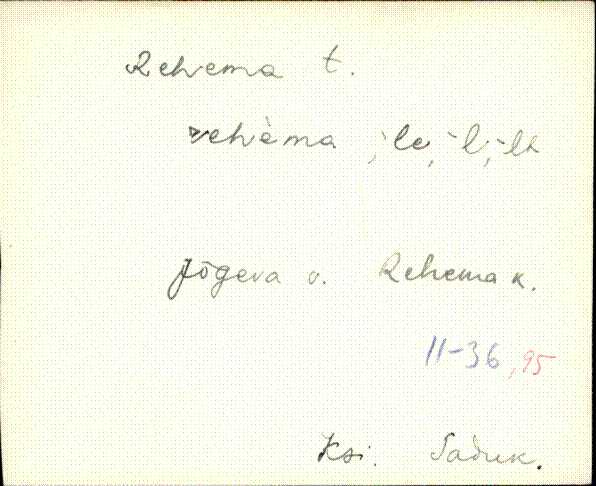 Rehema t.
rehèma, -le, -l, -lt
Jõgeva v. Rehema k.
11-36, 95
Ksi. Saduk.